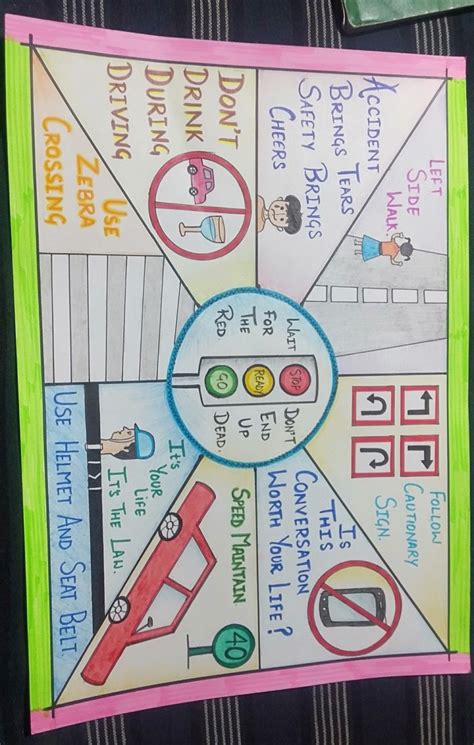 DON'T
DRINK
DURING
DRIVING
ACCIDENT
BRINGS TEARS
SAFETY BRINGS
CHEERS
LEFT
SIDE
WALK.
USE
ZEBRA
CROSSING
WAIT
FOR
THE
RED
STOP
READY
GO
DON'T
END
UP
DEAD.
FOLLOW
CAUTIONARY
SIGN.
IT'S
YOUR
LIFE
IT'S THE LAW.
USE HELMET AND SEAT BELT.
SPEED MAINTAIN
40
IS
THIS
CONVERSATION
WORTH YOUR LIFE?